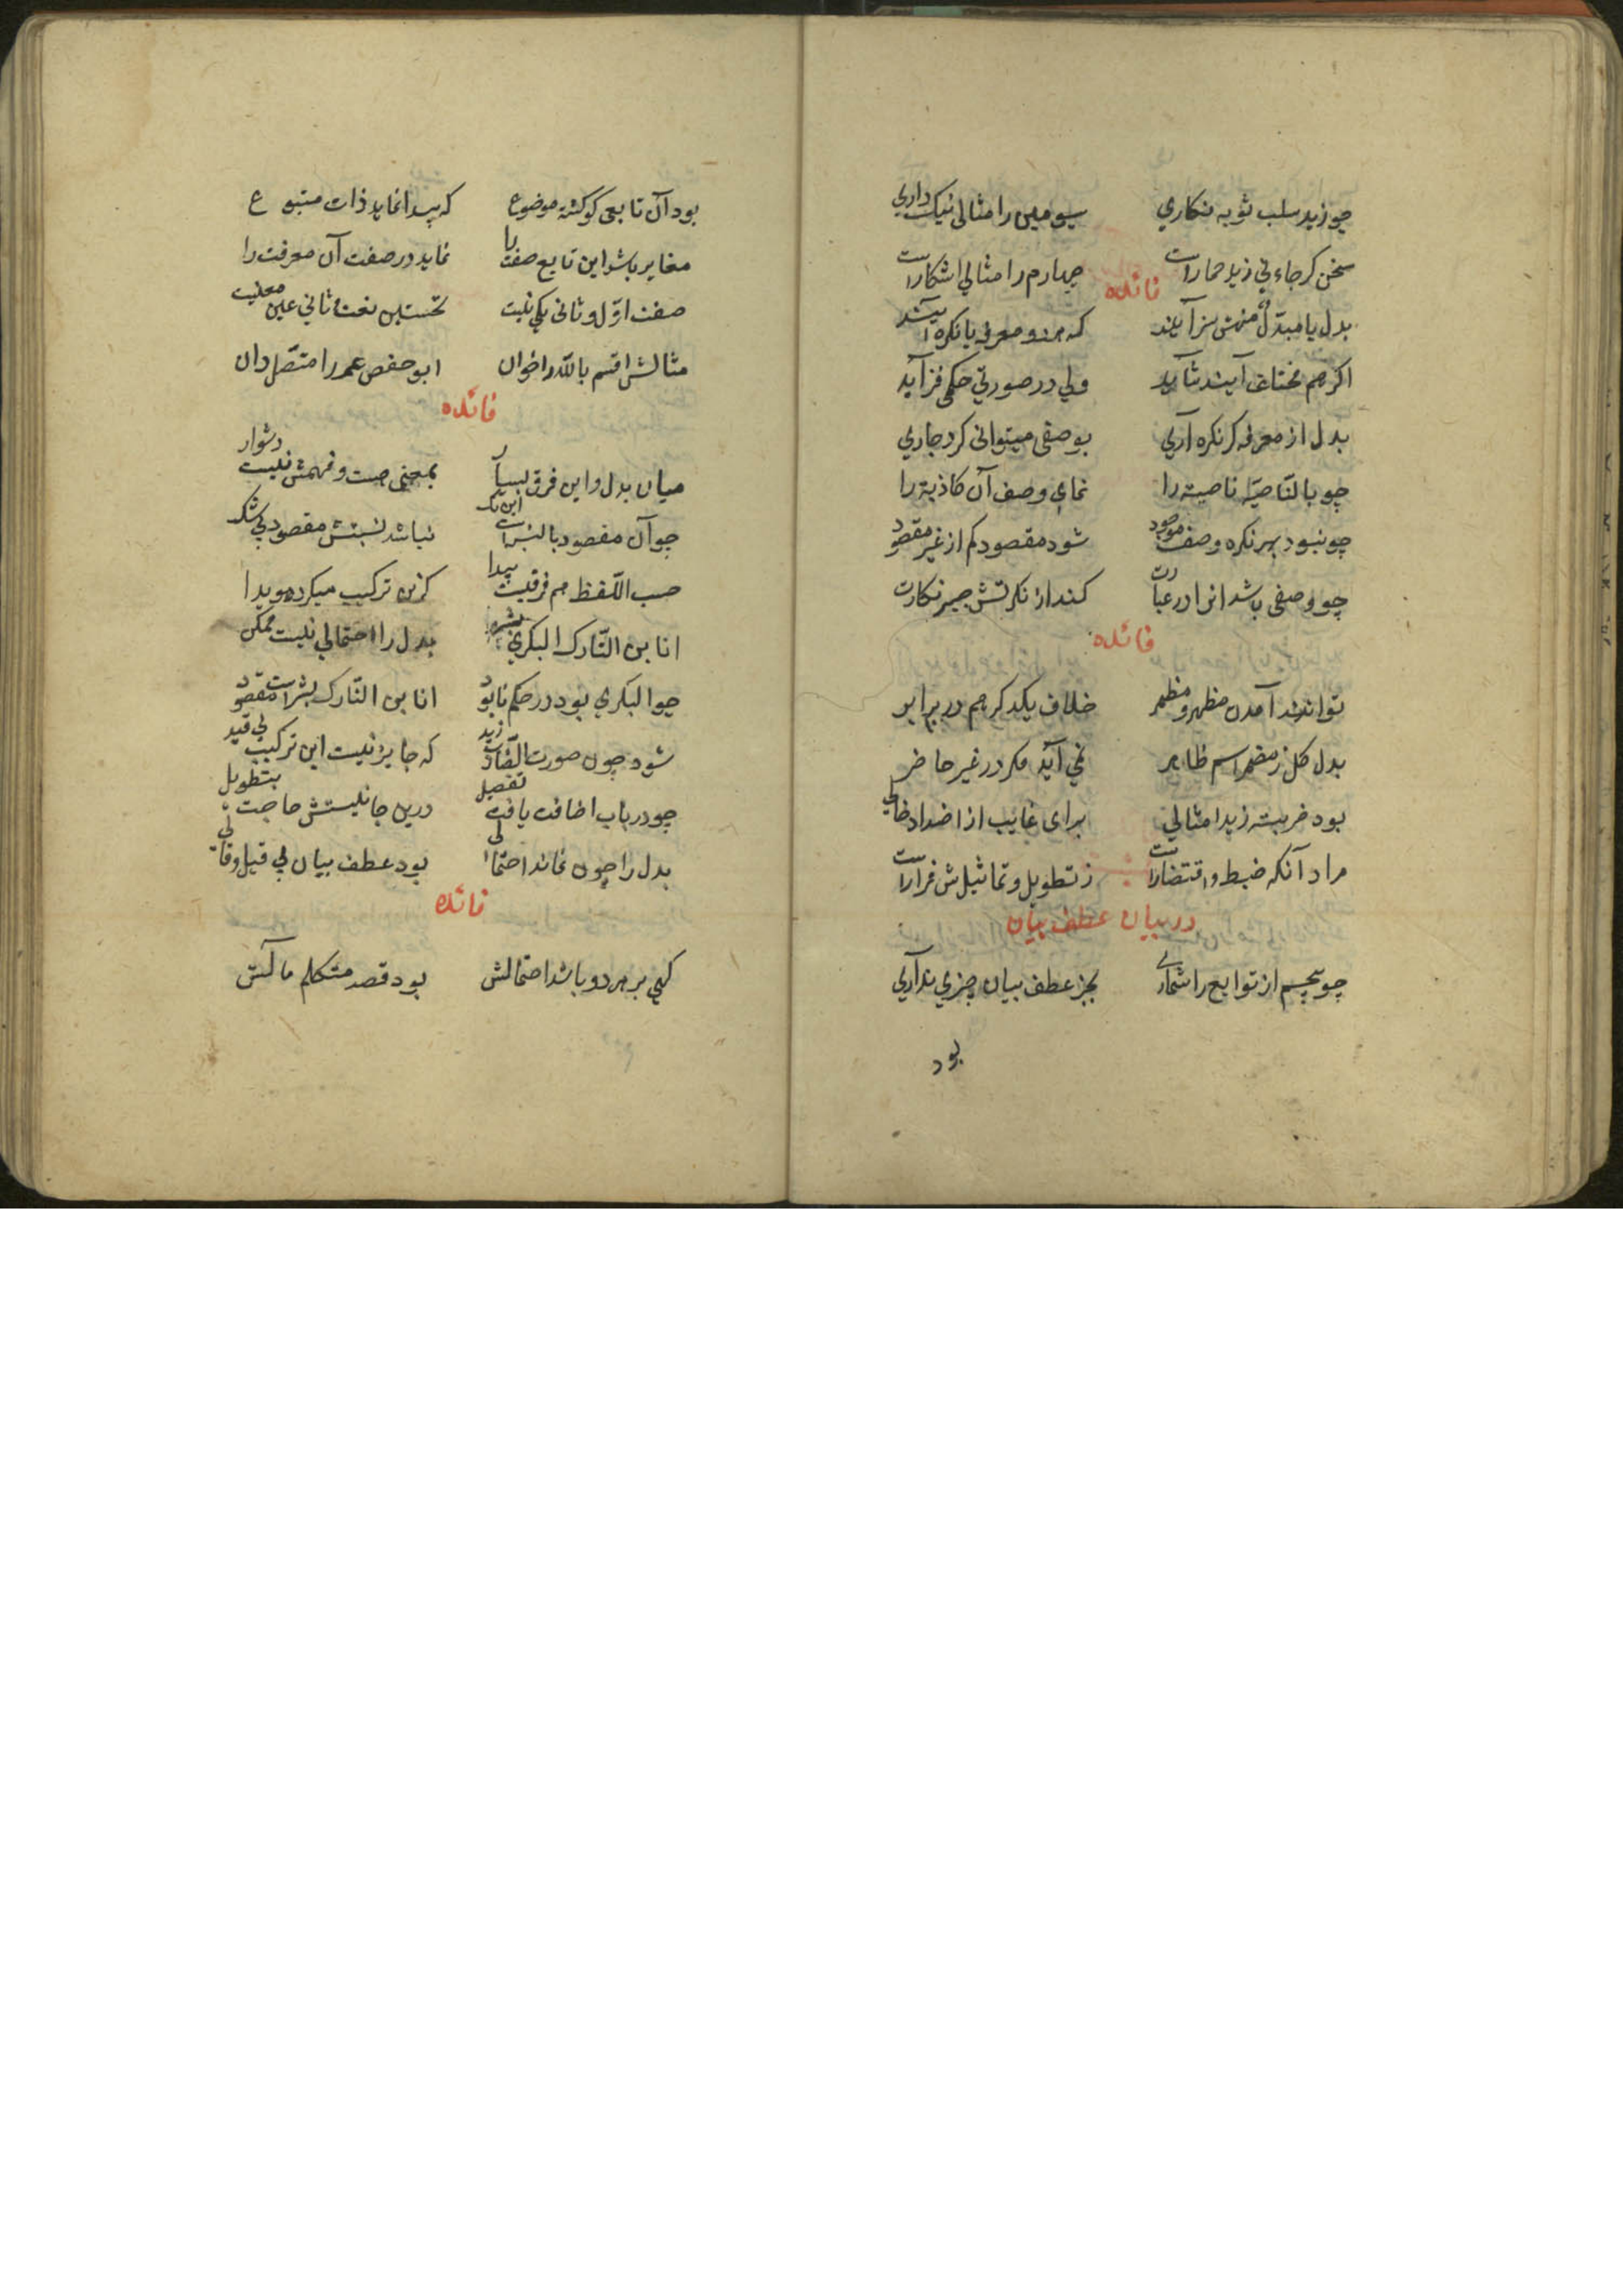 چو زید سلب ثوبه نکاری سیومین را مثالی نیک داری
سخن کر جاءنی زید حمارست چهارم را مثالی اشکارست
فائده
بدل یا مبدل منهش سزآیند که هر دو معرفه یا نکره آیند
اکر هم مختلف آیند شآید ولی در صورتی حکمی فزآید
بدل از معرفه کر نکره آری بوصفی میتوانی کرد جاری
چو بالنّاصیة ناصیة را نمای وصف آن کاذبة را
چو نبود بهر نکره وصف موجود شود مقصود کم از غیر مقصود
چو وصفی باشد انرا در عبارت کند از نکرتش جبر نکارت
فائده
توانند آمدن مظهر و مضمر خلاف یکدکر هم در برابر
بدل کل ز مضمر اسم ظاهر نمی آید مکر در غیر حاضر
بود ضربته زیدا مثالی برای غایب از اضداد خالی
مراد آنکه ضبط و اقتضارست ز تطویل و تماثیلش فرارست
در بیان عطف بیان
چو پنجم از توابع را شماری بجز عطف بیان چیزی نداری
بود
بود آن تابعی کو کشته موضوع که پیدا نماید ذات متبوع
مغایر باشد این تابع صفت را نماید در صفت آن معرفت را
صفت اوّل و ثانی یکی نیست نخستین نعت ثانی عین معنیست
مثالش اقسم باللّه را خوان ابو حفص عمر را متّصل دان
فائده
میان بدل و این فرق بسیار بمعنی هست و فهمش نیست دشوار
چو آن مقصود بالنسبت این یک نباشد نسبتش مقصود بی شک
حسب اللّفظ هم فرقیست پیدا کزین ترکیب میکردد هویدا
انا بن التّارک البکری بشر بدل را احتمالی نیست ممکن
چو البکری بود در حکم نابود انا بن التّارک بشرست مقصود
شود چون صورت الضّارب زید که جایز نیست این ترکیب بی قید
چو در باب اضافت یافت تفصیل درین جا نیستش حاجت بتطویل
بدل را چون نماند احتمالی بود عطف بیان بی قیل و قالی
فائده
کهی بر هر دو باشد احتمالش بود قصد متکلم مآلش